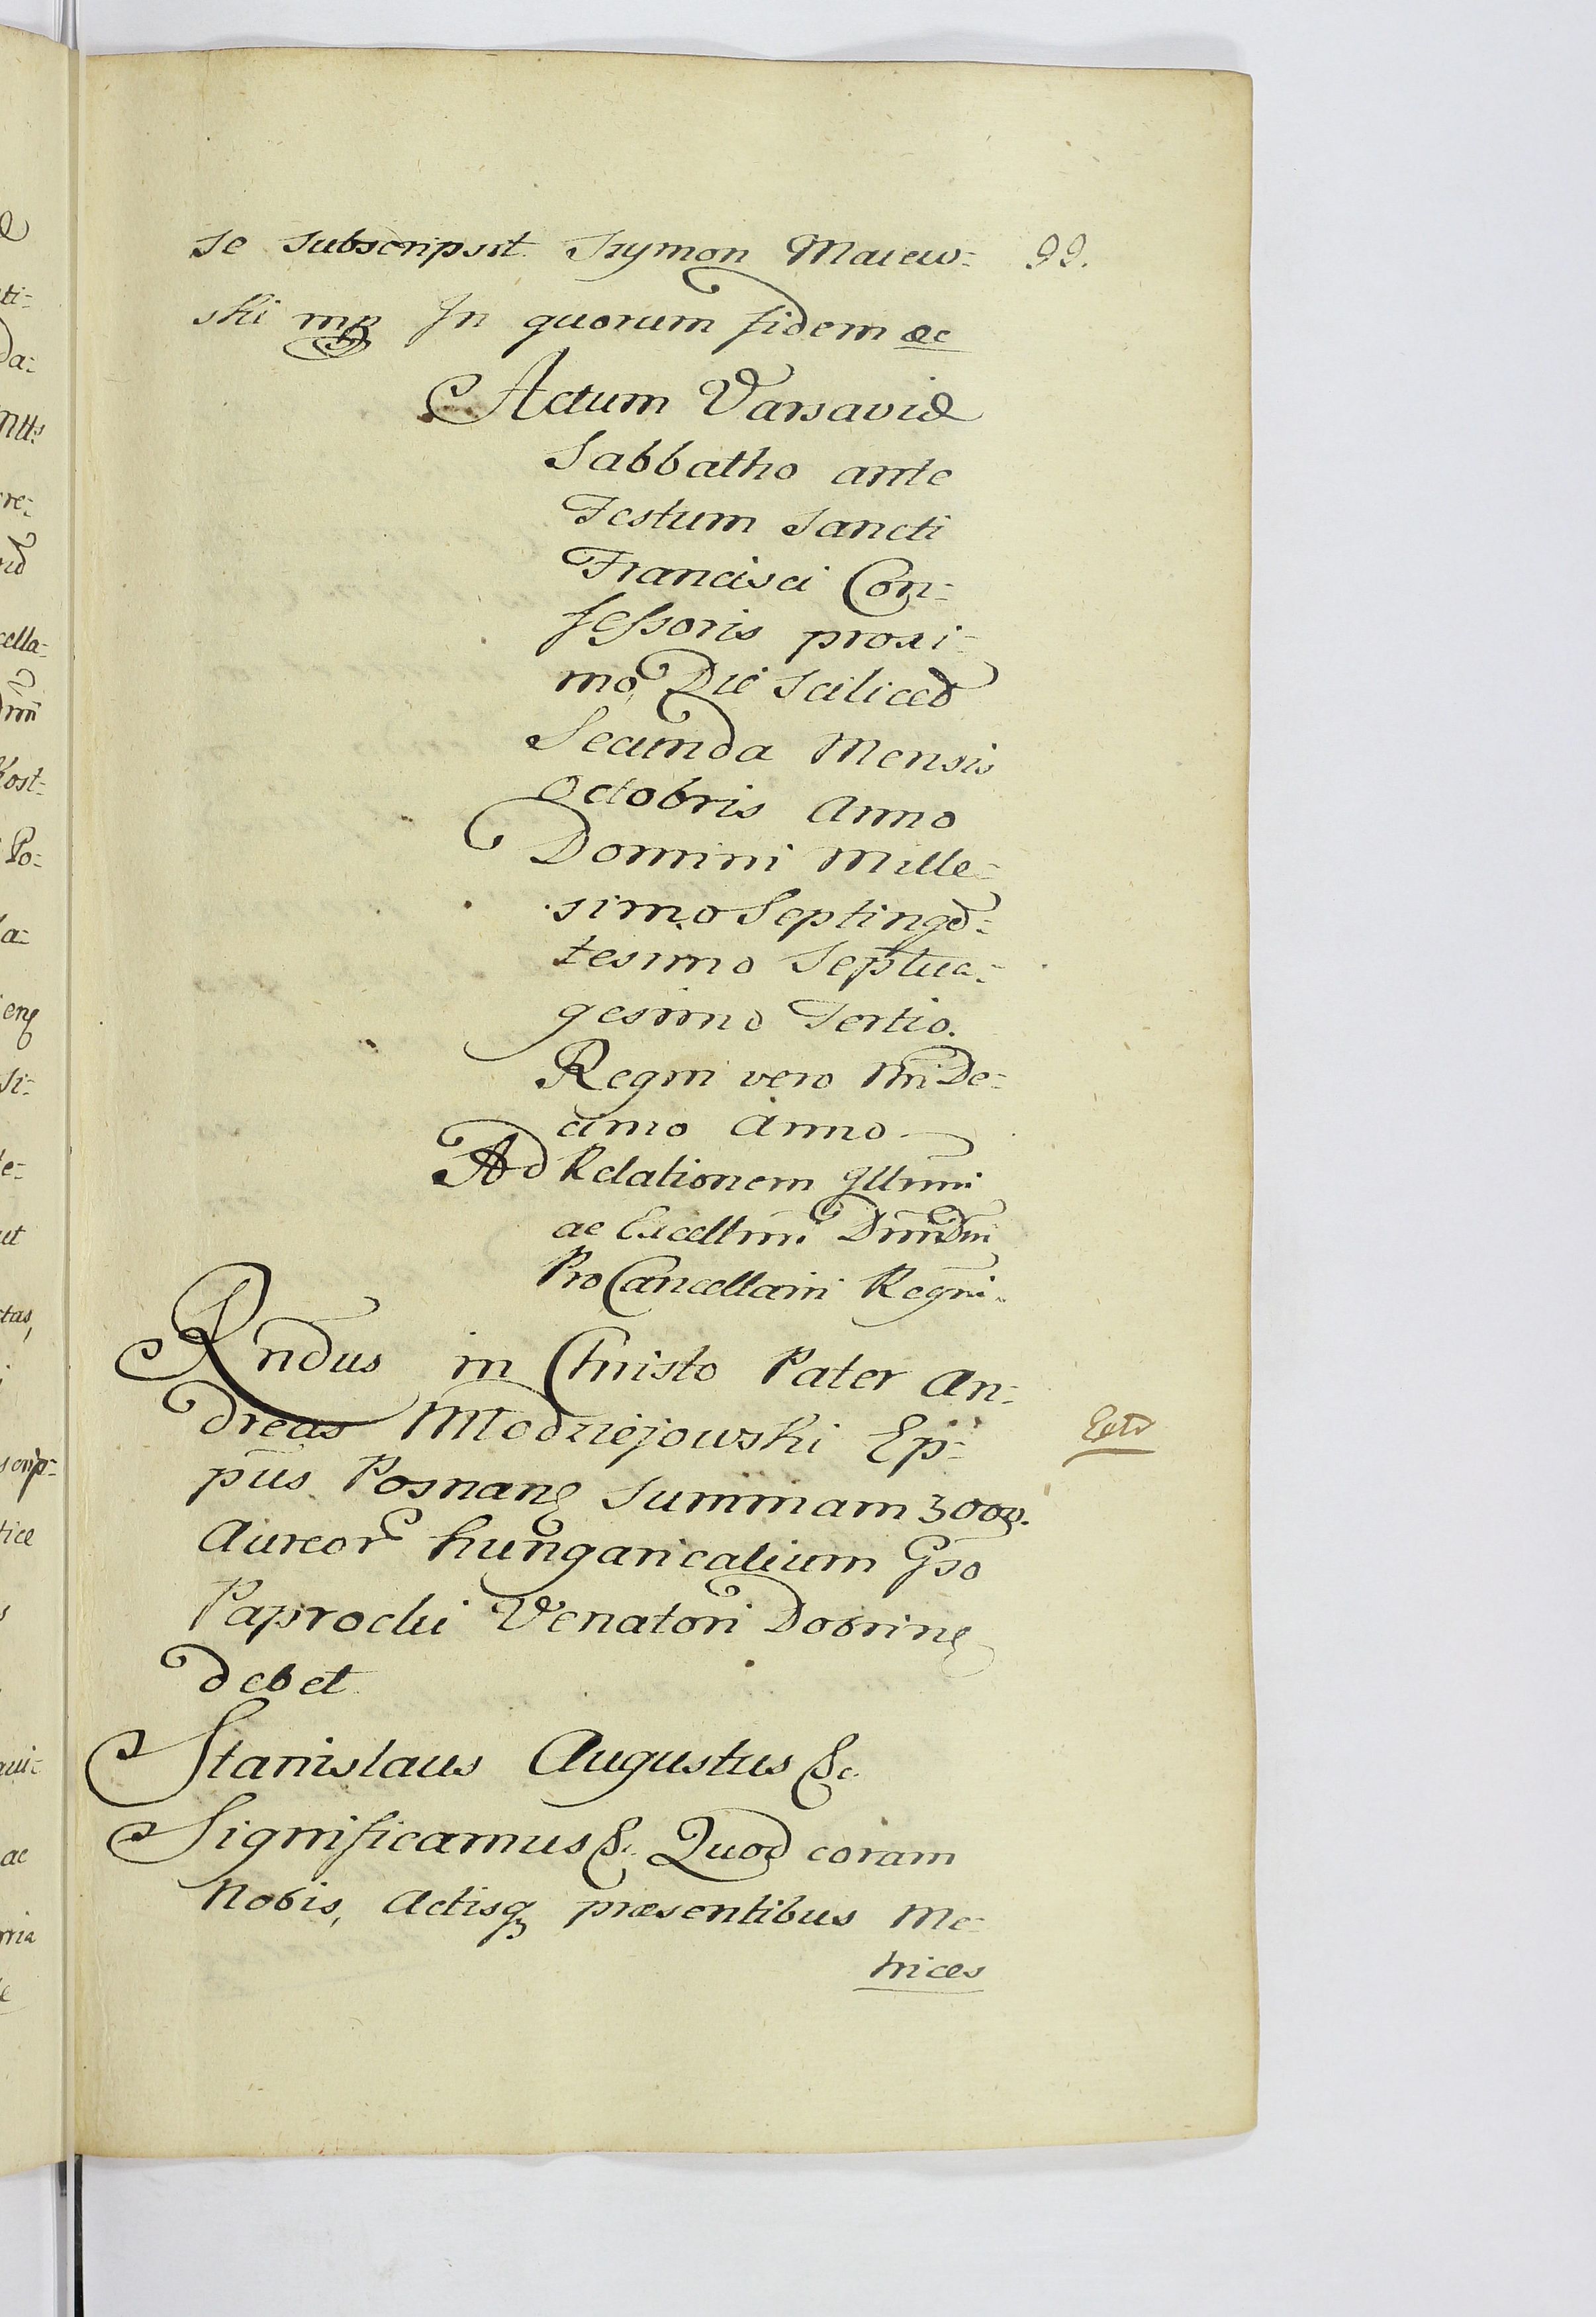 se subscripsit Szymon Maiew= 99.
ski mp In quorum fidem &c
Actum Varsaviæ
Sabbatho ante
Festum Sancti
Francisci Con=
fessoris proxi=
mo Die Scilicet
Secunda Mensis
Octobris Anno
Domini Mille=
simo Septingen=
tesimo Septua=
gesimo Tertio.
Regni vero Nri De=
cimo Anno
Ad Relationem Illmi
ac Excellmi Dni Dni
ProCancellarii Regni.
Rndus in Christo Pater An=
dreas Młodziejowski Ep= Extr
pus Posnanę Summam 3000.
Aureor hungaricalium Gso
Paprocki Venatori Dobrinę
debet
Stanislaus Augustus &c.
Significamus &c. Quod coram
Nobis, Actisq præsentibus Me=
trices